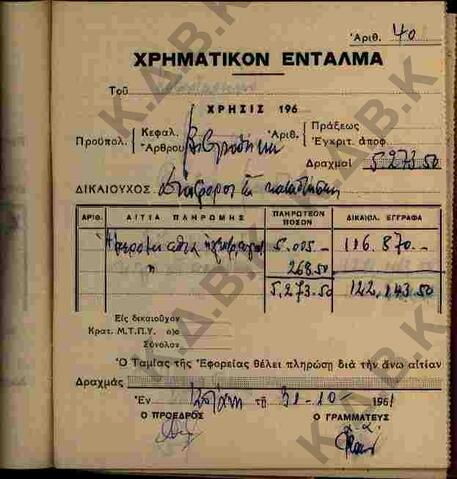 Ἀριθ. 40
ΧΡΗΜΑΤΙΚΟΝ ΕΝΤΑΛΜΑ
Τοῦ
ΧΡΗΣΙΣ 196
Προϋπολ. Κεφαλ. Ἄρθρου Βιβλιοθήκη Ἀριθ. Πράξεως Ἐγκριτ. ἀποφ.
Δραχμαὶ 5.273.50
ΔΙΚΑΙΟΥΧΟΣ Διάφοροι
ΑΡΙΘ. ΑΙΤΙΑ ΠΛΗΡΩΜΗΣ ΠΛΗΡΩΤΕΟΝ ΠΟΣΟΝ ΔΙΚΑΙΟΛ. ΕΓΓΡΑΦΑ
5.005.- 116.870.-
268.50
5.273.50 122.143.50
Εἰς δικαιοῦχον
Κρατ. Μ.Τ.Π.Υ. ο)ο
Σύνολον
Ὁ Ταμίας τῆς Ἐφορείας θέλει πληρώσῃ διὰ τὴν ἄνω αἰτίαν
Δραχμὰς
Ἐν Κοζάνῃ τῇ 31-10-1961
Ο ΠΡΟΕΔΡΟΣ Ο ΓΡΑΜΜΑΤΕΥΣ
Κ.Δ.Β.Κ